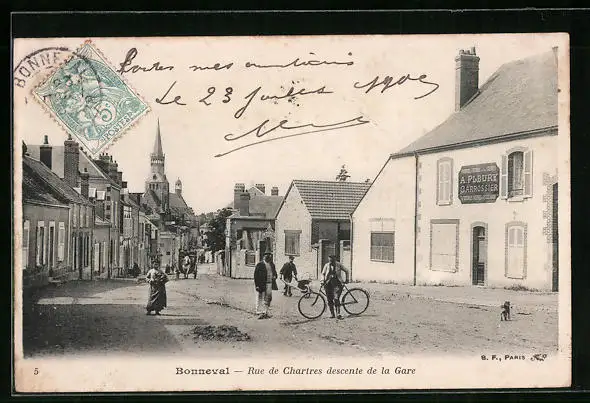 BONNE
5
Toutes mes amitiés
Le 23 Janvier 1904
A. FLEURY
GARROSSIER
B. F., PARIS
5
Bonneval — Rue de Chartres descente de la Gare